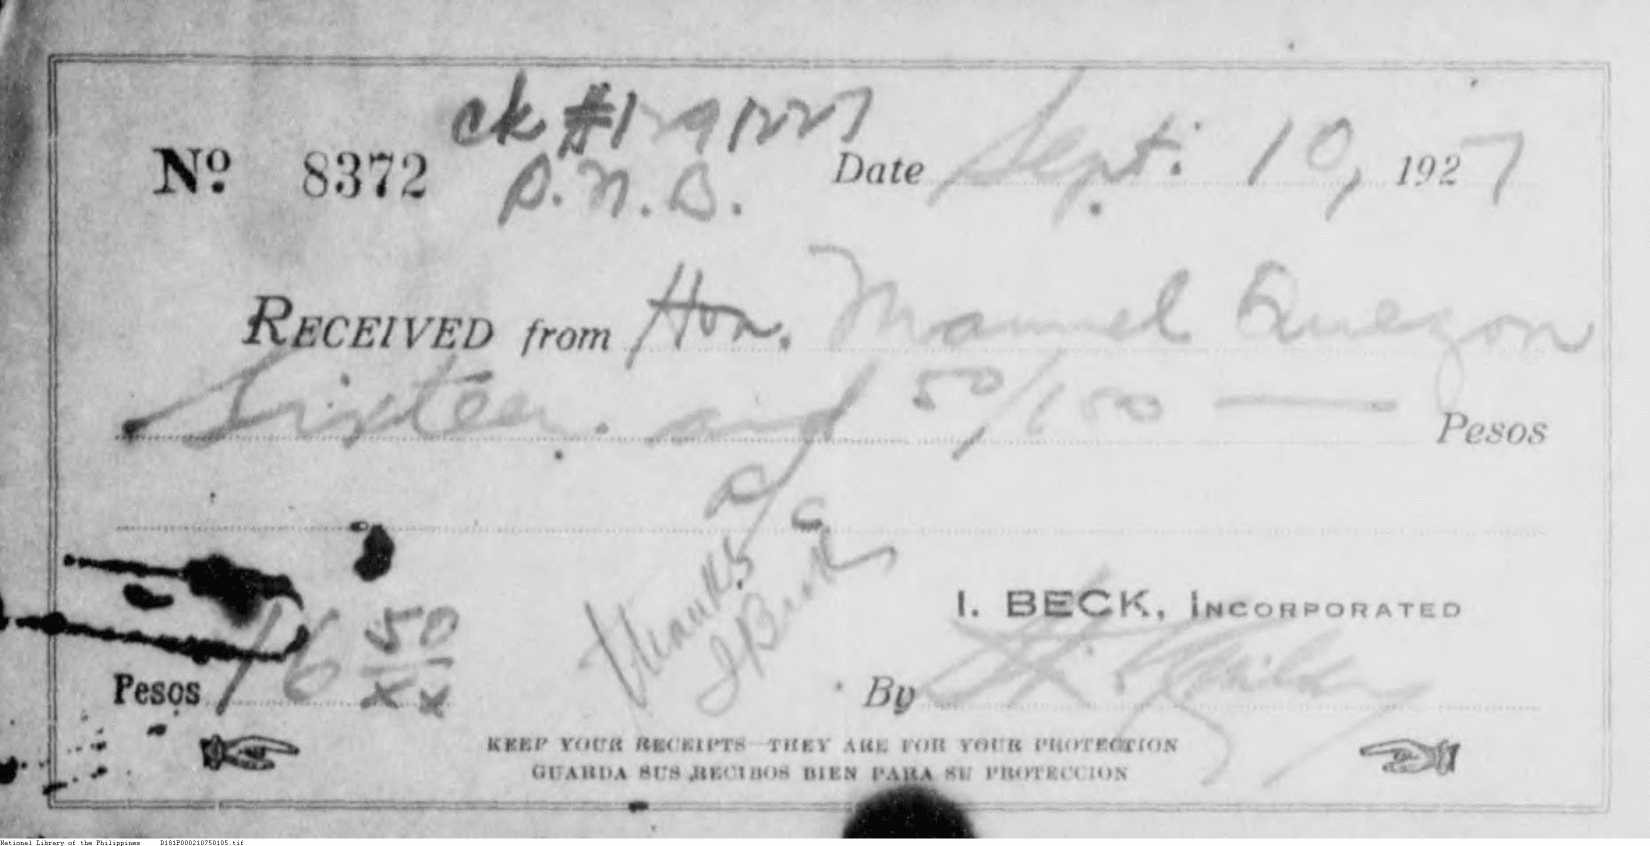 ck #1291227
Nº 8372 P.N.B. Date Sept. 10, 1927
RECEIVED from Hon. Manuel Quezon
Sixteen and 50/100 — Pesos
a/c
Thanks
I Beck
I. BECK, INCORPORATED
Pesos 16 50/xx
By
KEEP YOUR RECEIPTS—THEY ARE FOR YOUR PROTECTION
GUARDA SUS RECIBOS BIEN PARA SU PROTECCION
National Library of the Philippines D181P000210750105.tif